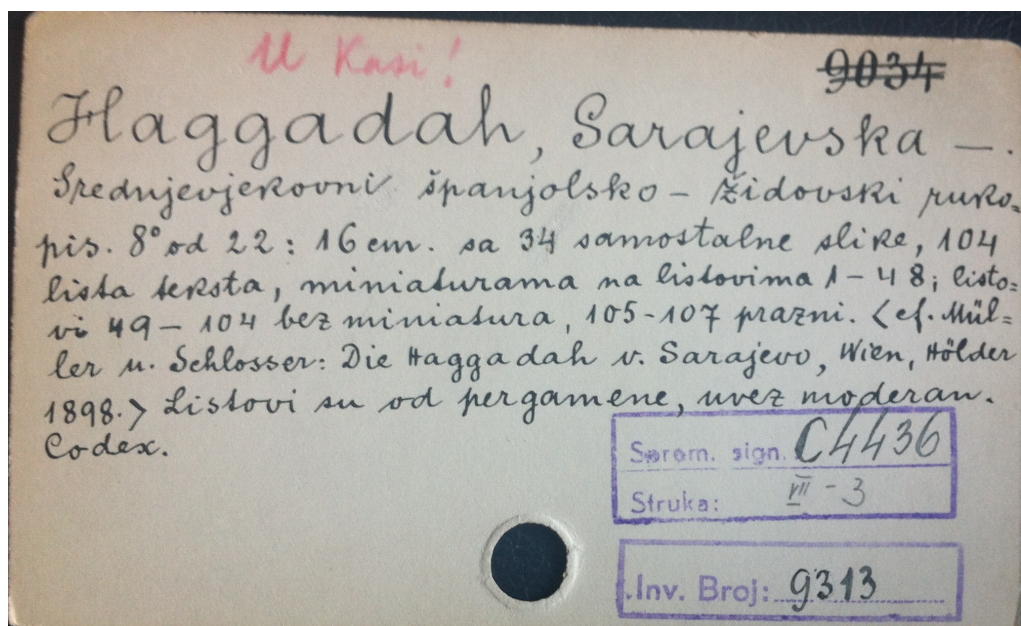 U Kasi!
9034
Haggadah, Sarajevska —.
Srednjevjekovni španjolsko – židovski ruko=
pis. 8° od 22 : 16 cm. sa 34 samostalne slike, 104
lista teksta, miniaturama na listovima 1 – 48; listo=
vi 49 – 104 bez miniatura, 105-107 prazni. <cf. Mül=
ler u. Schlosser: Die Haggadah v. Sarajevo, Wien, Hölder
1898.> Listovi su od pergamene, uvez moderan.
Codex.
Sprem. sign. C4436
Struka: VII - 3
Inv. Broj: 9313